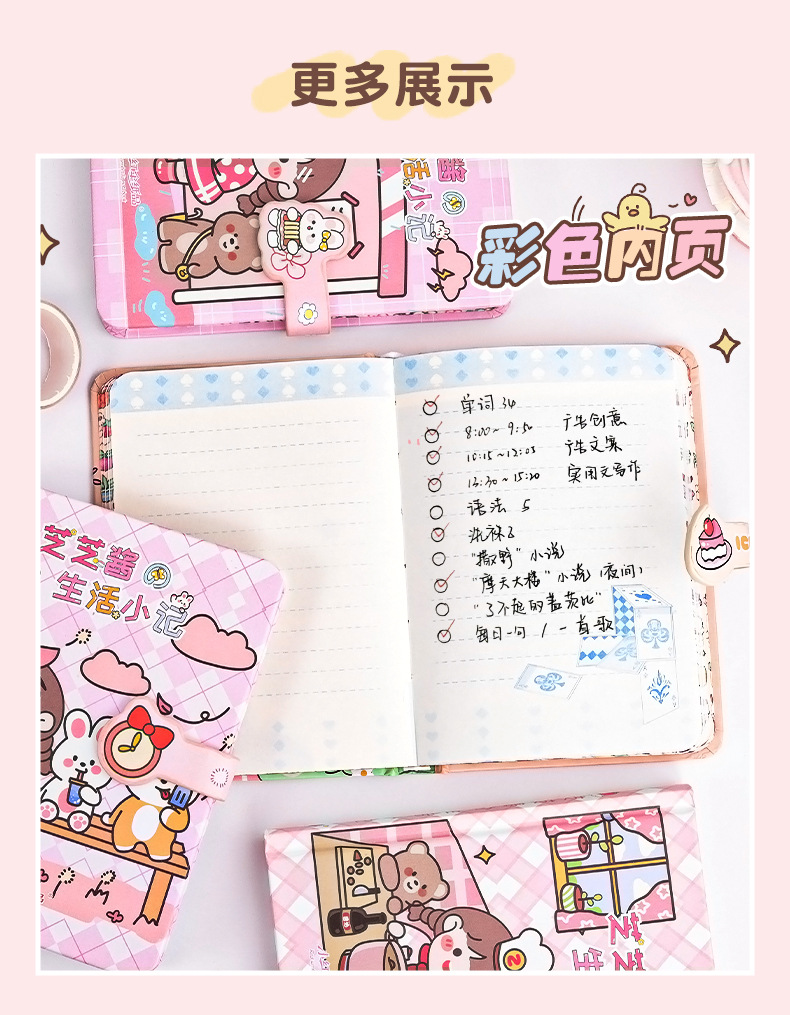 更多展示
酱の
活小记
彩色内页
单词 34
8:00~9:50 广告创意
10:15~12:05 广告文案
13:30~15:20 实用文写作
语法 5
洗袜子
"撒野"小说
"摩天大楼"小说(夜间)
"了不起的盖茨比"
每日一句 / 一首歌
芝芝酱の
生活小记
芝芝
生